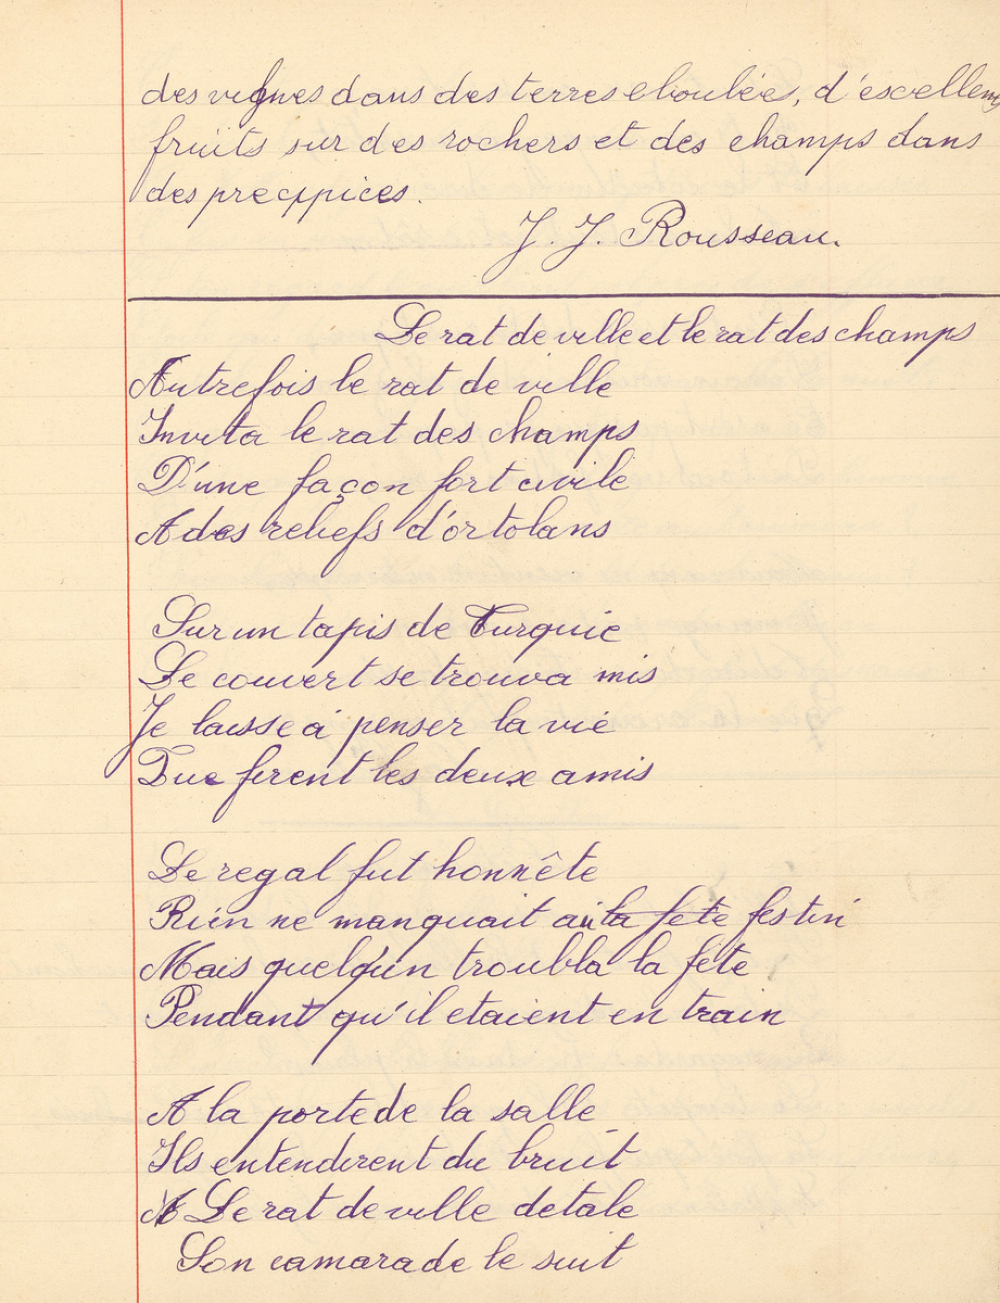 des vignes dans des terres eboulées, d'escellents
fruits sur des rochers et des champs dans
des precppices.
J. J. Rousseau.
Le rat de ville et le rat des champs
Autrefois le rat de ville
Invita le rat des champs
D'une façon fort civile
A des reliefs d'ortolans
Sur un tapis de Turquie
Le couvert se trouva mis
Je laisse à penser la vie
Que firent les deux amis
Le regal fut honnête
Rien ne manquait au la fete festin
Mais quelqu'un troubla la fête
Pendant qu'il etaient en train
A la porte de la salle
Ils entendirent du bruit
A Le rat de ville detale
Son camarade le suit